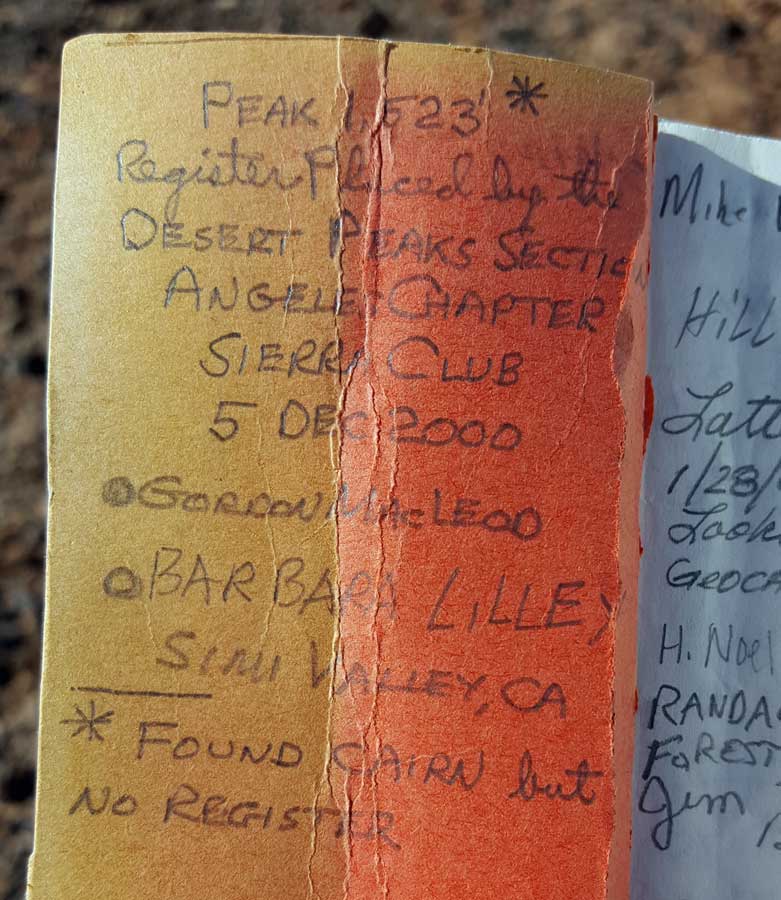 PEAK 1,523' *
Register Placed by the
DESERT PEAKS SECTION
ANGELES CHAPTER
SIERRA CLUB
5 DEC 2000
GORDON MACLEOD
BARBARA LILLEY
SIMI VALLEY, CA
* FOUND CAIRN but
NO REGISTER
Mike
Hill
1/28/
H. Noel
FOREST
Jim